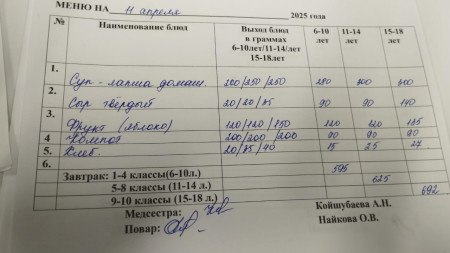 МЕНЮ НА 11 апреля 2025 года
№ Наименование блюд Выход блюд в граммах 6-10лет/11-14/лет 15-18лет 6-10 лет 11-14 лет 15-18 лет
1. Суп-лапша домаш. 200/250/250 280 300 300
2. Сыр твёрдый 20/20/35 90 90 140
3. Фрукт (яблоко) 120/120/150 120 120 135
4 Компот 200/200/200 90 90 90
5. Хлеб 20/35/40 15 25 27
6.
Завтрак: 1-4 классы(6-10л.) 595
5-8 классы (11-14 л.) 625
9-10 классы (15-18 л.) 692
Медсестра: Койшубаева А.Н.
Повар: Найкова О.В.